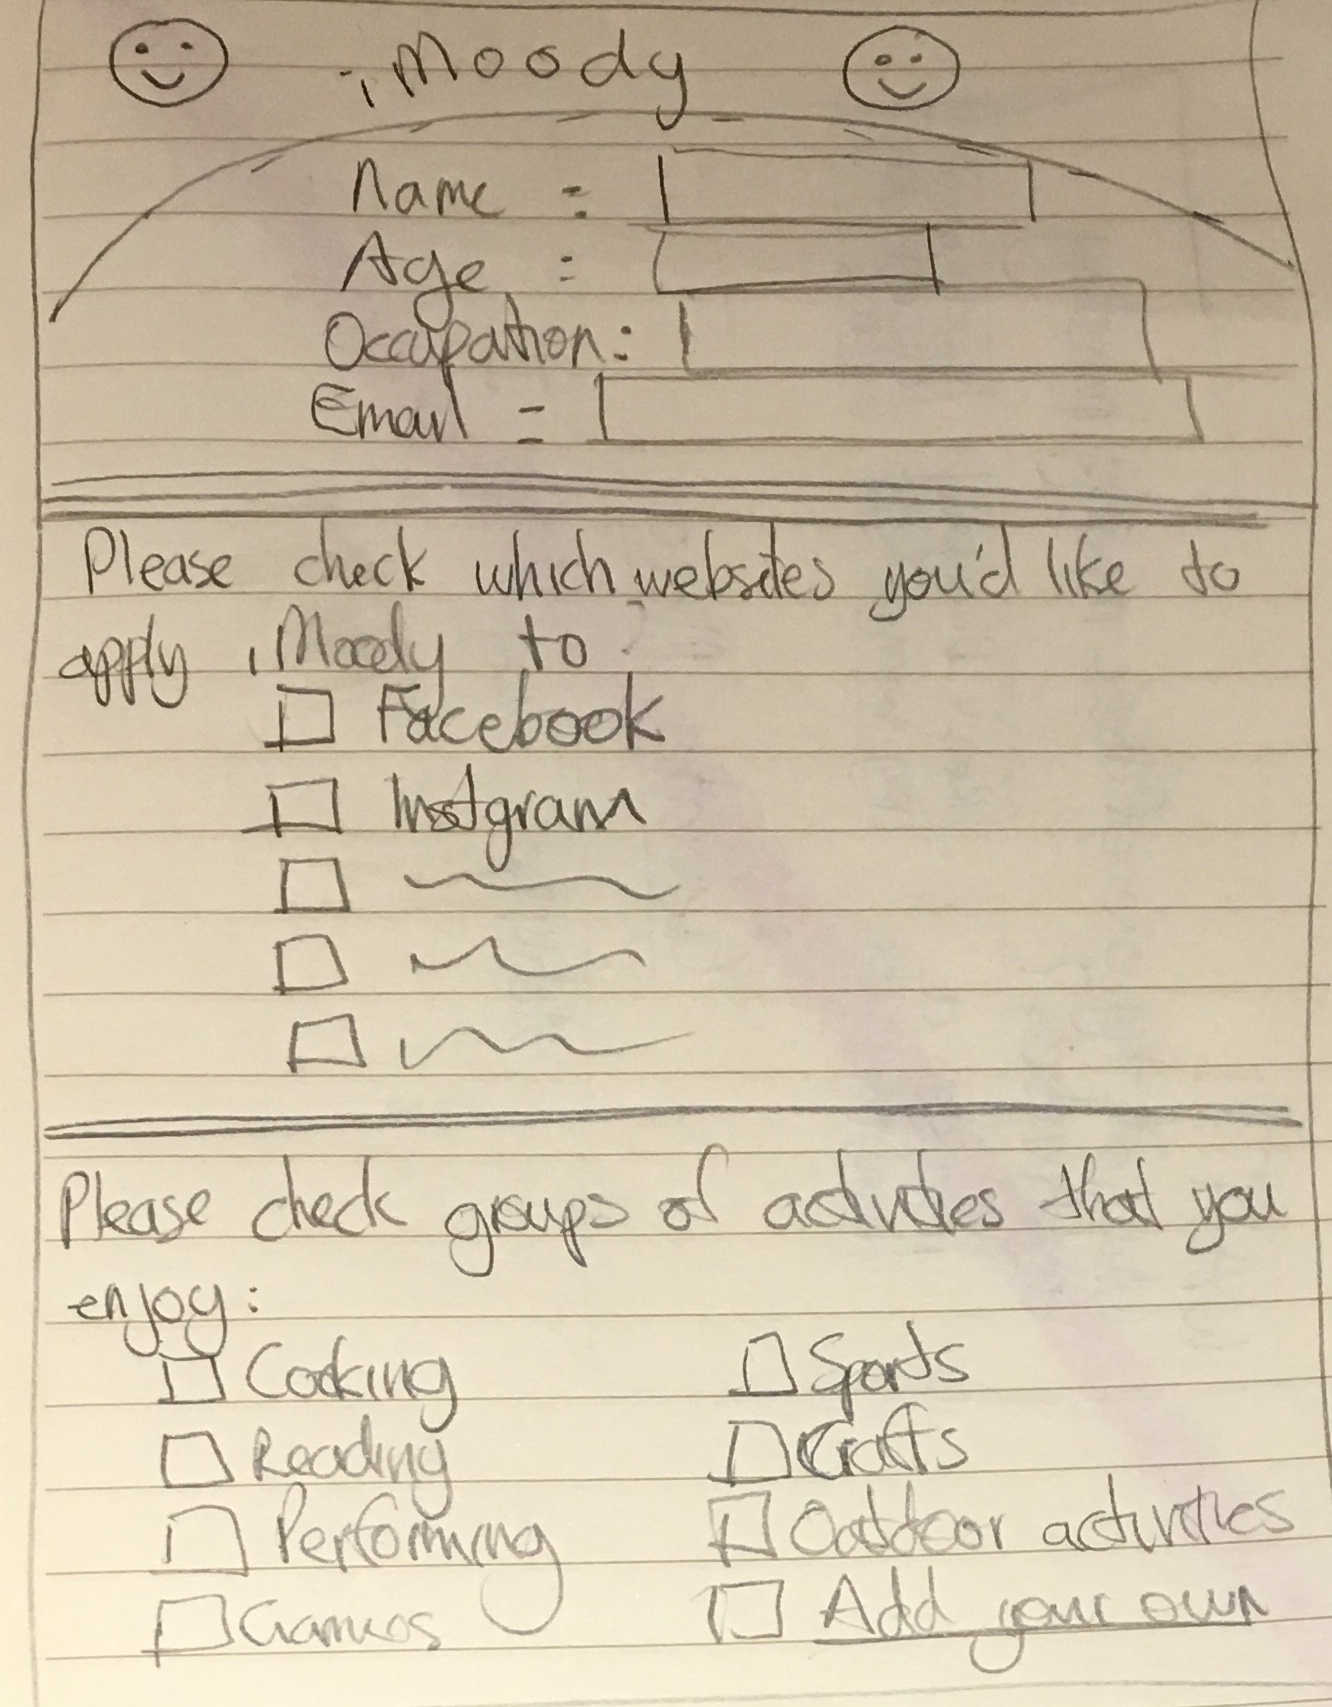 iMoody
Name :
Age :
Occupation:
Email :
Please check which websites you'd like to
apply iMoody to
Facebook
Instgram
Please check groups of activities that you
enjoy:
Cooking Sports
Reading Crafts
Performing Outdoor activities
Games Add your own